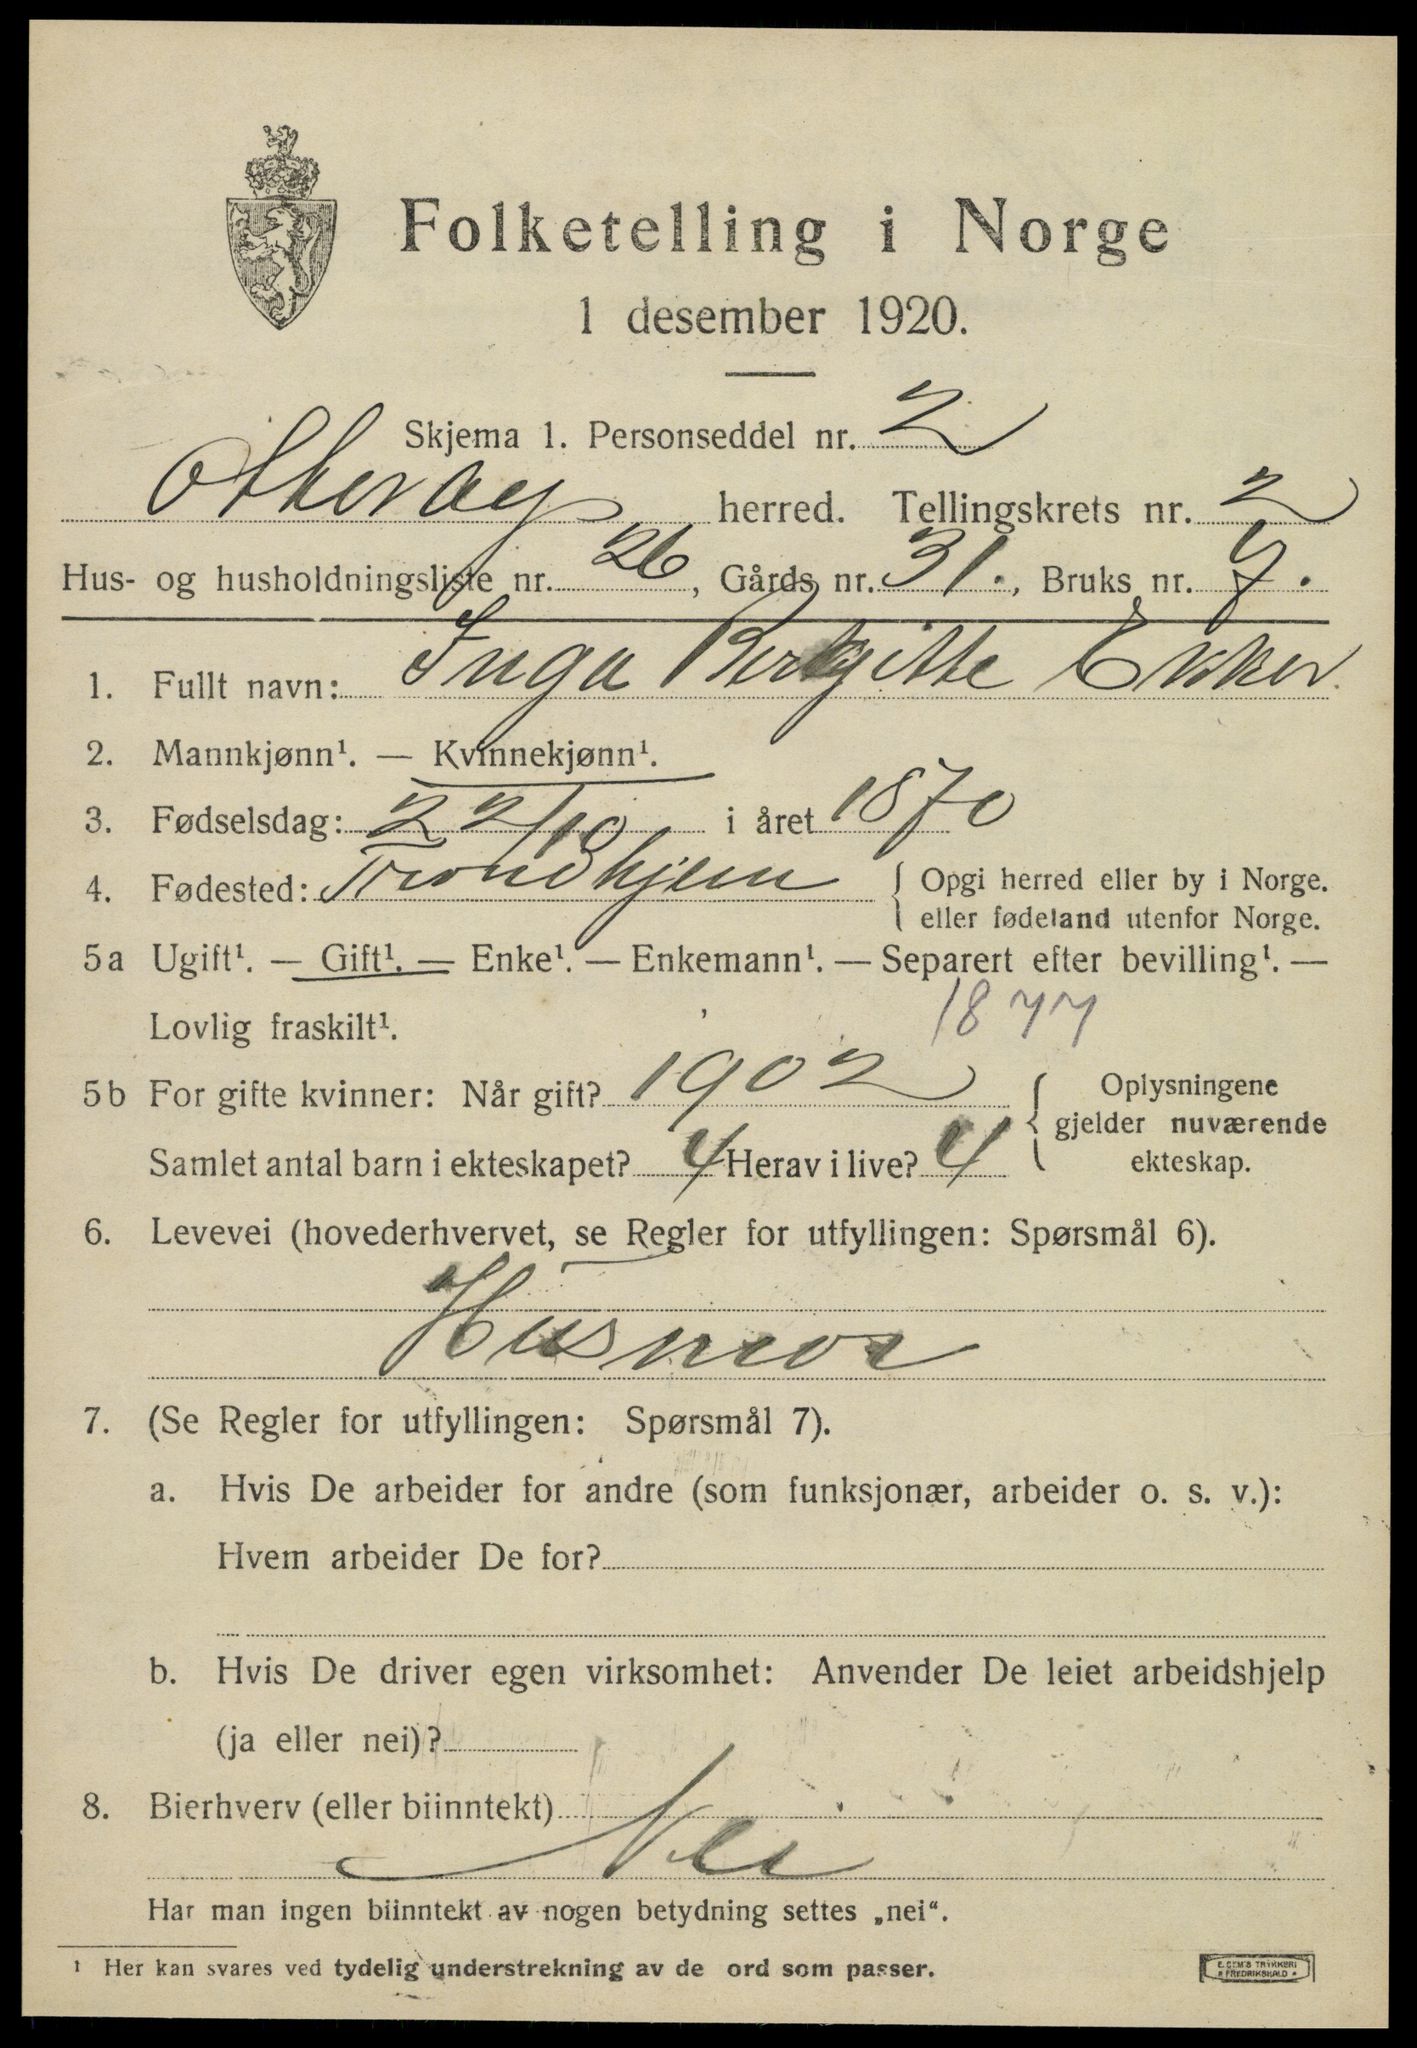 Folketelling i Norge
1 desember 1920.
Skjema 1. Personseddel nr. 2
Otterøy herred. Tellingskrets nr. 2
Hus- og husholdningsliste nr. 26, Gårds nr. 31., Bruks nr. 7.
1. Fullt navn: Inga Bergitte Ekker
2. Mannkjønn¹. — Kvinnekjønn¹.
3. Fødselsdag: 22/10 i året 1870
4. Fødested: Trondhjem { Opgi herred eller by i Norge.
eller fødeland utenfor Norge.
5a Ugift¹. — Gift¹. — Enke¹. — Enkemann¹. — Separert efter bevilling¹. —
Lovlig fraskilt¹. 1877
5b For gifte kvinner: Når gift? 1902 { Oplysningene
gjelder nuværende
Samlet antal barn i ekteskapet? 4 Herav i live? 4 ekteskap.
6. Levevei (hovederhvervet, se Regler for utfyllingen: Spørsmål 6).
Husmor
7. (Se Regler for utfyllingen: Spørsmål 7).
a. Hvis De arbeider for andre (som funksjonær, arbeider o. s. v.):
Hvem arbeider De for?
b. Hvis De driver egen virksomhet: Anvender De leiet arbeidshjelp
(ja eller nei)?
8. Bierhverv (eller biinntekt)
Nei
Har man ingen biinntekt av nogen betydning settes „nei“.
¹ Her kan svares ved tydelig understrekning av de ord som passer.
E. SEM'S TRYKKERI
FREDRIKSHALD